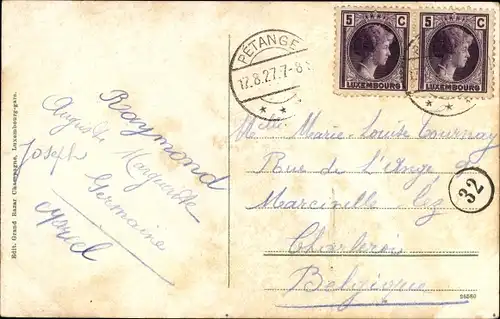 PETANGE
17.8.27.7-8
5 C
LUXEMBOURG
5 C
LUXEMBOURG
Raymond
Auguste
Marguerite
Joseph
Germaine
Edit. Grand Bazar, Champagne, Luxembourg-gare.
Melle Marie-Louise Tournay
Rue de L'Ange
Marcinelle lez
Charleroi
Belgique
32